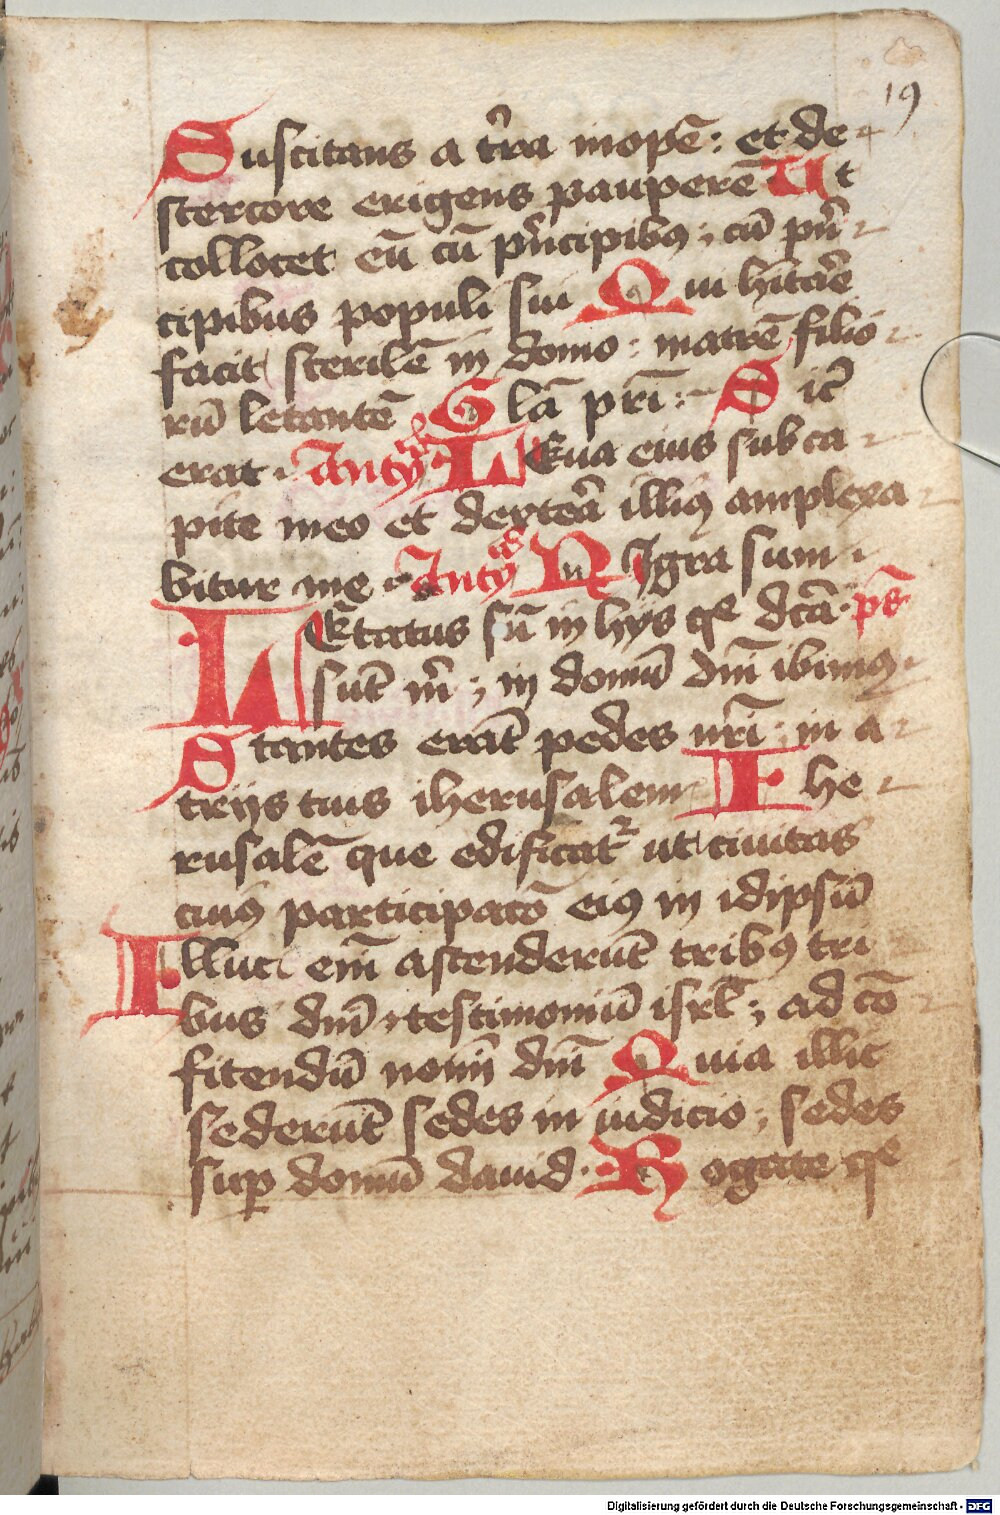 19
Suscitans a t̄ra inopē : et de
stercore erigens pauperē Ut
collocet eū cū p̄ncipibꝰ ; cū pn̄
cipibus populi sui Qui hītār̄e
facit sterilē in domo : matrē filio
rū letantē Glā pr̄i : Sic̄
erat · Anty̅ LEua eius sub ca
pite meo et dexterā illiꝰ amplexa
bitur me · Anty̅ Nigra sum ·
LEtatus sū in hijs qͤ dc̄ā · pͤs
sūt m̄ ; in domū dn̄i ibimꝰ ·
Stantes erāt pedes nr̄i ; in a
trijs tuis iherusalem Ihe
rusalē que edificatᷣ ut ciuitas
cuiꝰ participatō eiꝰ in idipsū
Illuc em̄ ascenderūt tribꝰ tri
bus dn̄i ; testimoniū isrl̄ ; ad cō
fitendū nomī dn̄i Quia illic
sederūt sedes in iudicio ; sedes
suꝑ domū dauid · Rogate qͤ
Digitalisierung gefördert durch die Deutsche Forschungsgemeinschaft - DFG